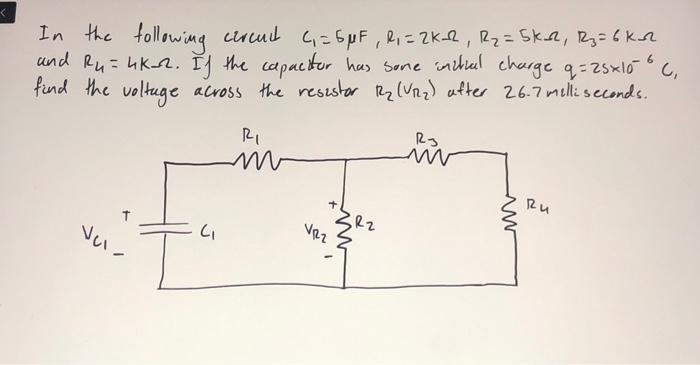 In the following circuit C₁ = 5μF, R₁ = 2K Ω, R₂ = 5k Ω, R₃ = 6 K Ω
and R₄ = 4K Ω. If the capacitor has some initial charge q = 25x10⁻⁶ C,
find the voltage across the resistor R₂ (VR₂) after 26.7 milliseconds.
R₁
R₃
+
VC₁
-
C₁
+
VR₂
-
R₂
R₄